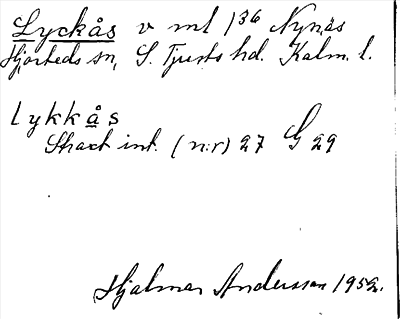 Lyckås v ml 1³⁶ Nynäs
Hjorteds sn, S. Tjusts hd. Kalm. l.
lykkås
Skaxt int. (n:r) 27 G 29
Hjalmar Andersson 1952.